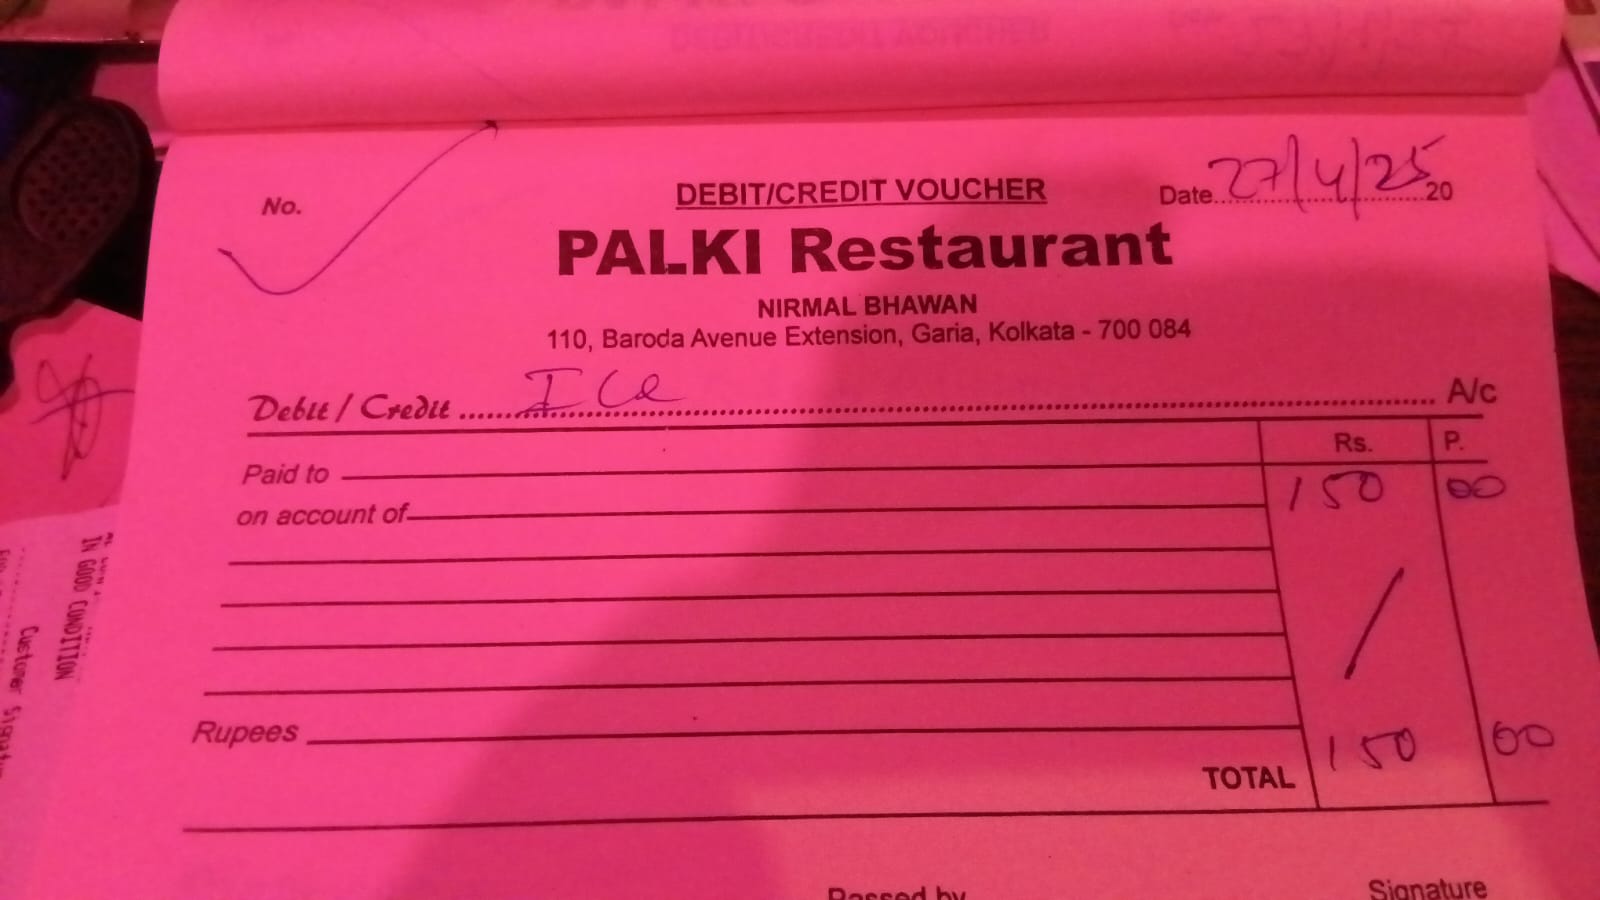 DEBIT/CREDIT VOUCHER
No.
Date 27/4/25 20
PALKI Restaurant
NIRMAL BHAWAN
110, Baroda Avenue Extension, Garia, Kolkata - 700 084
Debit / Credit Ice A/c
Rs. P.
Paid to 150 00
on account of
Rupees
TOTAL 150 00
Passed by Signature
IN GOOD CONDITION
Customer